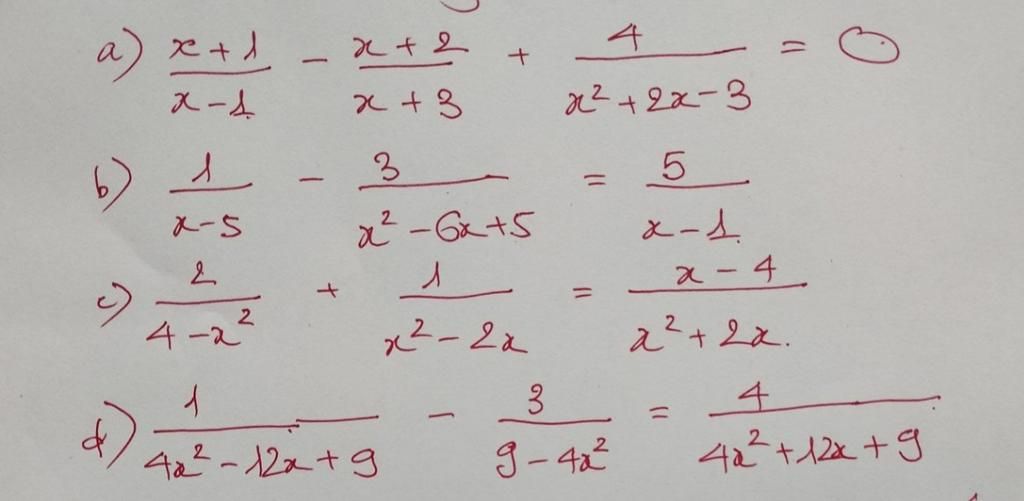 a) \frac{x+1}{x-1} - \frac{x+2}{x+3} + \frac{4}{x^2+2x-3} = 0
b) \frac{1}{x-5} - \frac{3}{x^2-6x+5} = \frac{5}{x-1}
c) \frac{2}{4-x^2} + \frac{1}{x^2-2x} = \frac{x-4}{x^2+2x}.
d) \frac{1}{4x^2-12x+9} - \frac{3}{9-4x^2} = \frac{4}{4x^2+12x+9}